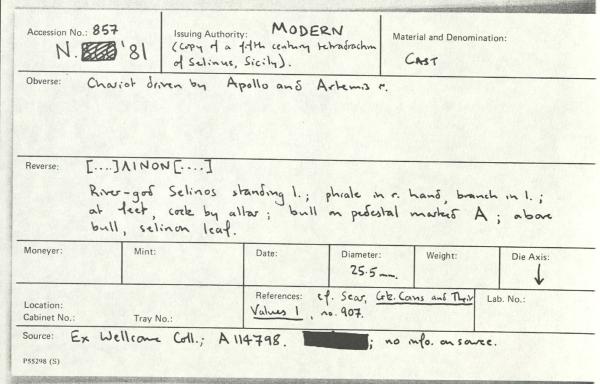 Accession No.: 857
N. '81
Issuing Authority: MODERN
(copy of a fifth century tetradrachm
of Selinus, Sicily).
Material and Denomination:
CAST
Obverse: Chariot driven by Apollo and Artemis r.
Reverse: [....]ΛINON[....]
River-god Selinos standing l.; phiale in r. hand, branch in l.;
at feet, cock by altar; bull on pedestal marked A; above
bull, selinon leaf.
Moneyer:
Mint:
Date:
Diameter:
25.5mm.
Weight:
Die Axis:
↓
Location:
Cabinet No.:
Tray No.:
References: cf. Sear, Grk. Coins and Their
Values I, no. 907.
Lab. No.:
Source: Ex Wellcome Coll.; A 114798. ; no info. on source.
P55298 (S)